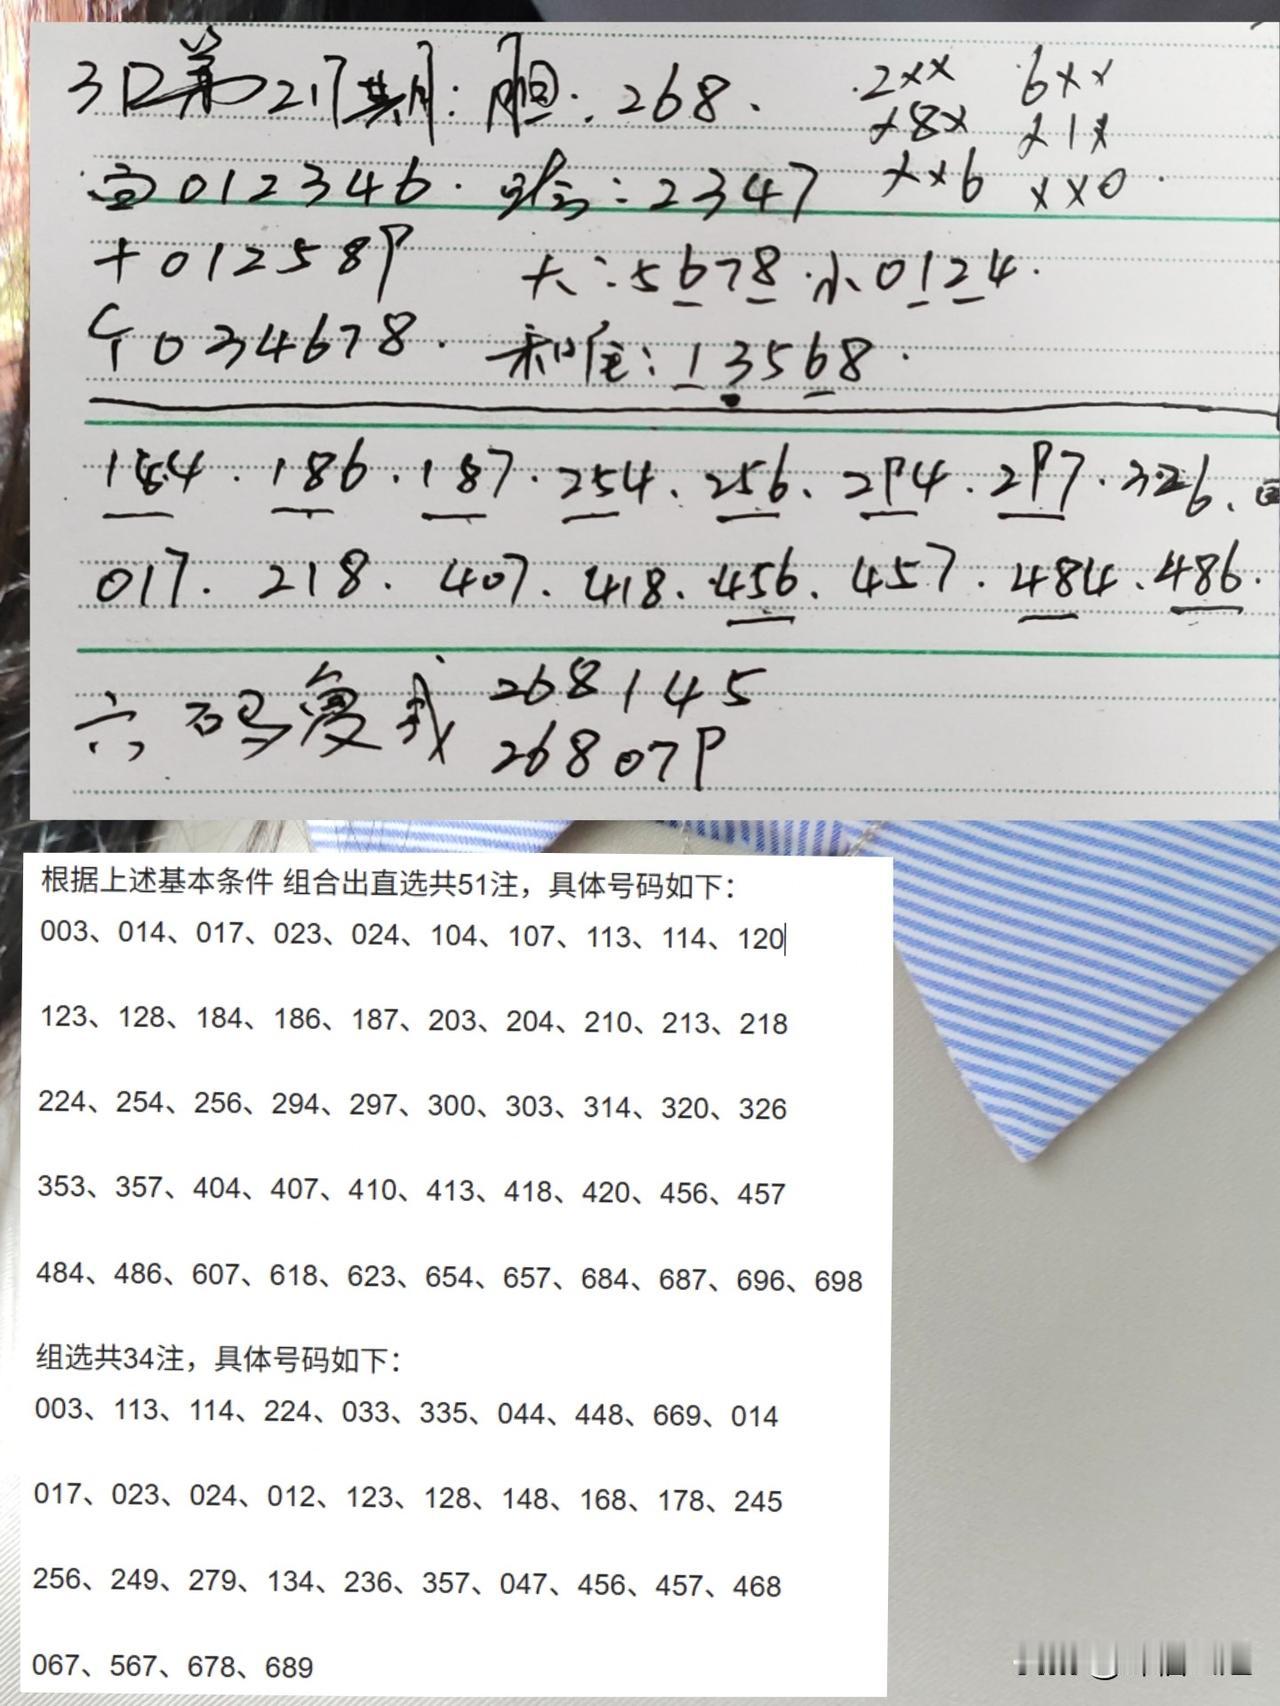 3D第217期：胆：268.
2xx 6xx
x8x x1x
xx6 xx0.
百012346. 跨：2347
十012589 大：5678.小0124.
个034678. 和值：13568.
184.186.187.254.256.294.297.326.
017.218.407.418.456.457.484.486.
六码复式 268145
268079
根据上述基本条件 组合出直选共51注，具体号码如下：
003、014、017、023、024、104、107、113、114、120
123、128、184、186、187、203、204、210、213、218
224、254、256、294、297、300、303、314、320、326
353、357、404、407、410、413、418、420、456、457
484、486、607、618、623、654、657、684、687、696、698
组选共34注，具体号码如下：
003、113、114、224、033、335、044、448、669、014
017、023、024、012、123、128、148、168、178、245
256、249、279、134、236、357、047、456、457、468
067、567、678、689